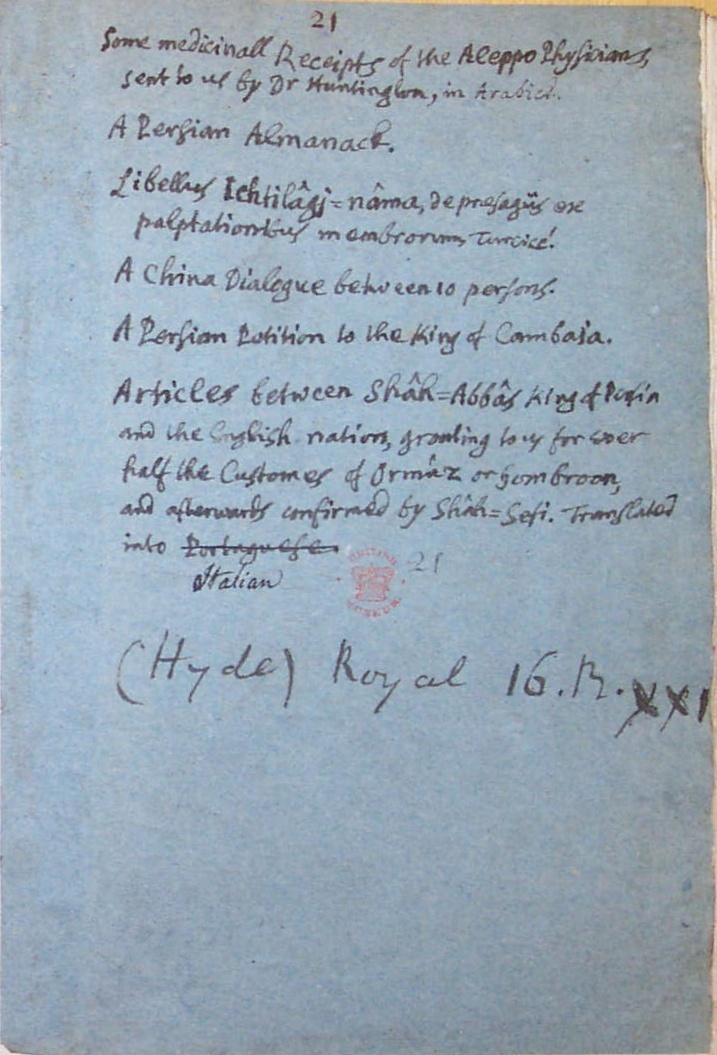 21
Some medicinall Receipts of the Aleppo Physicians,
sent to us by Dr Huntington, in Arabick.
A Persian Almanack.
Libellus Ichtilâgj=nâma, de presagiis ex
palptationibus membrorum, Turcicè.
A China Dialogue between 10 persons.
A Persian Petition to the King of Cambaia.
Articles between Shâh=Abbâs King of Persia
and the English nation, granting to us for ever
half the Customes of Ormûz or Gombroon,
and afterwards confirmed by Shâh=Sefi. Translated
into Portaguese.
Italian
21
BRITISH MUSEUM
(Hyde) Royal 16.B.XXI